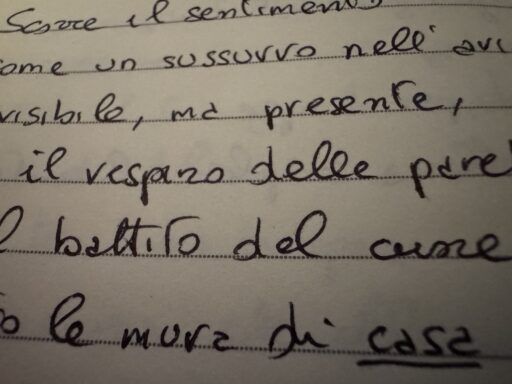 Scorre il sentimento
ome un sussurro nell'
visibile, ma presente,
il respiro delle pare
l battito del cuore
o le mura di casa